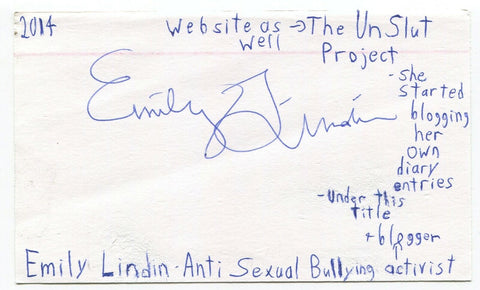 2014
Website as → The UnSlut
well
Project
- she
started
blogging
her
own
diary
entries
Emily Lindin
- Under this
title
+ blogger
Emily Lindin - Anti Sexual Bullying activist